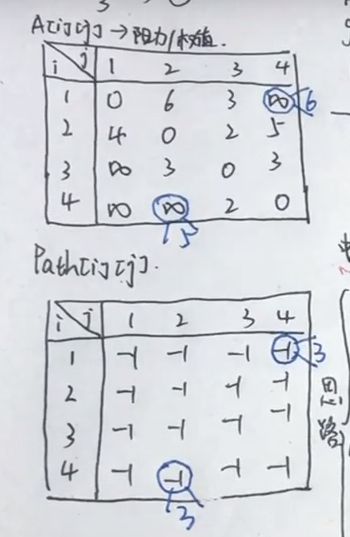 A[i][j] → 阻力/权值.
i j 1 2 3 4
1 0 6 3 ∞ 6
2 4 0 2 5
3 ∞ 3 0 3
4 ∞ ∞ 2 0
5
Path[i][j].
i j 1 2 3 4
1 -1 -1 -1 -1 3
2 -1 -1 -1 -1
3 -1 -1 -1 -1
4 -1 -1 -1 -1
3
思
路